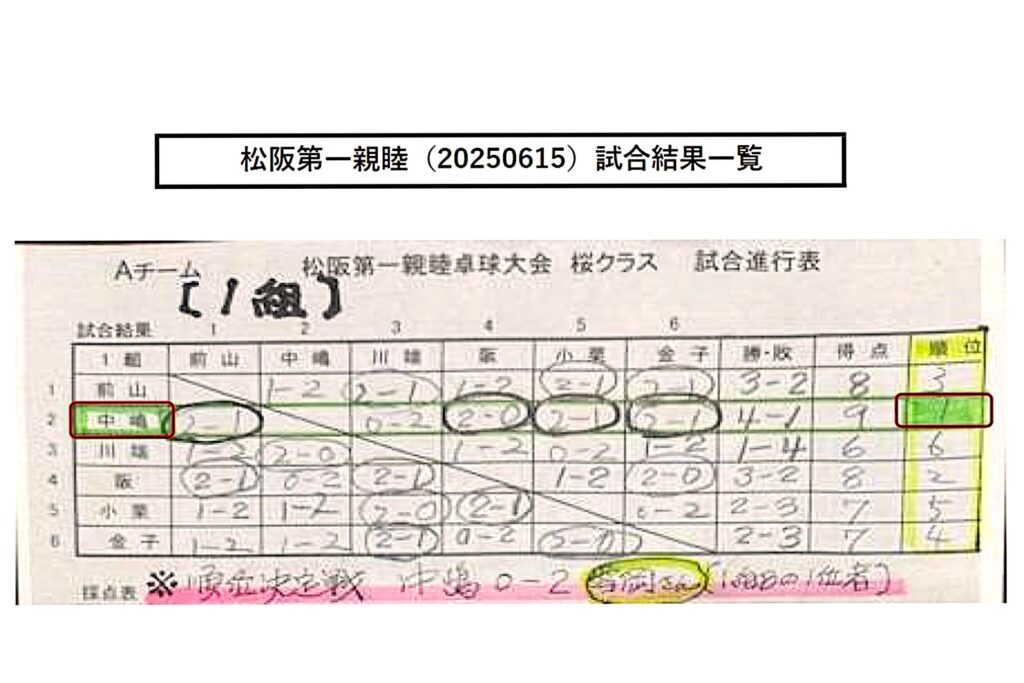 松阪第一親睦（20250615）試合結果一覧
Aチーム 松阪第一親睦卓球大会 桜クラス 試合進行表
【1組】
試合結果 1 2 3 4 5 6
1組 前山 中嶋 川端 阪 小栗 金子 勝・敗 得点 順位
1 前山 1-2 2-1 1-2 2-1 2-1 3-2 8 3
2 中嶋 2-1 0-2 2-0 2-1 2-1 4-1 9 1
3 川端 1-2 2-0 1-2 0-2 1-2 1-4 6 6
4 阪 2-1 0-2 2-1 1-2 2-0 3-2 8 2
5 小栗 1-2 1-2 2-0 2-1 0-2 2-3 7 5
6 金子 1-2 1-2 2-1 0-2 2-0 2-3 7 4
採点表 ※順位決定戦 中嶋 0-2 岡さん の1位者